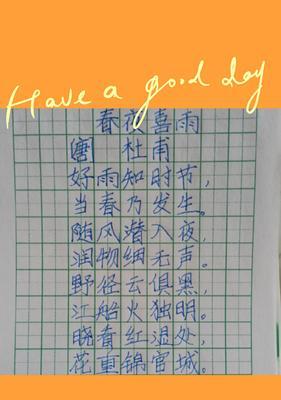 Have a good day
春夜喜雨
唐 杜甫
好雨知时节，
当春乃发生。
随风潜入夜，
润物细无声。
野径云俱黑，
江船火独明。
晓看红湿处，
花重锦官城。